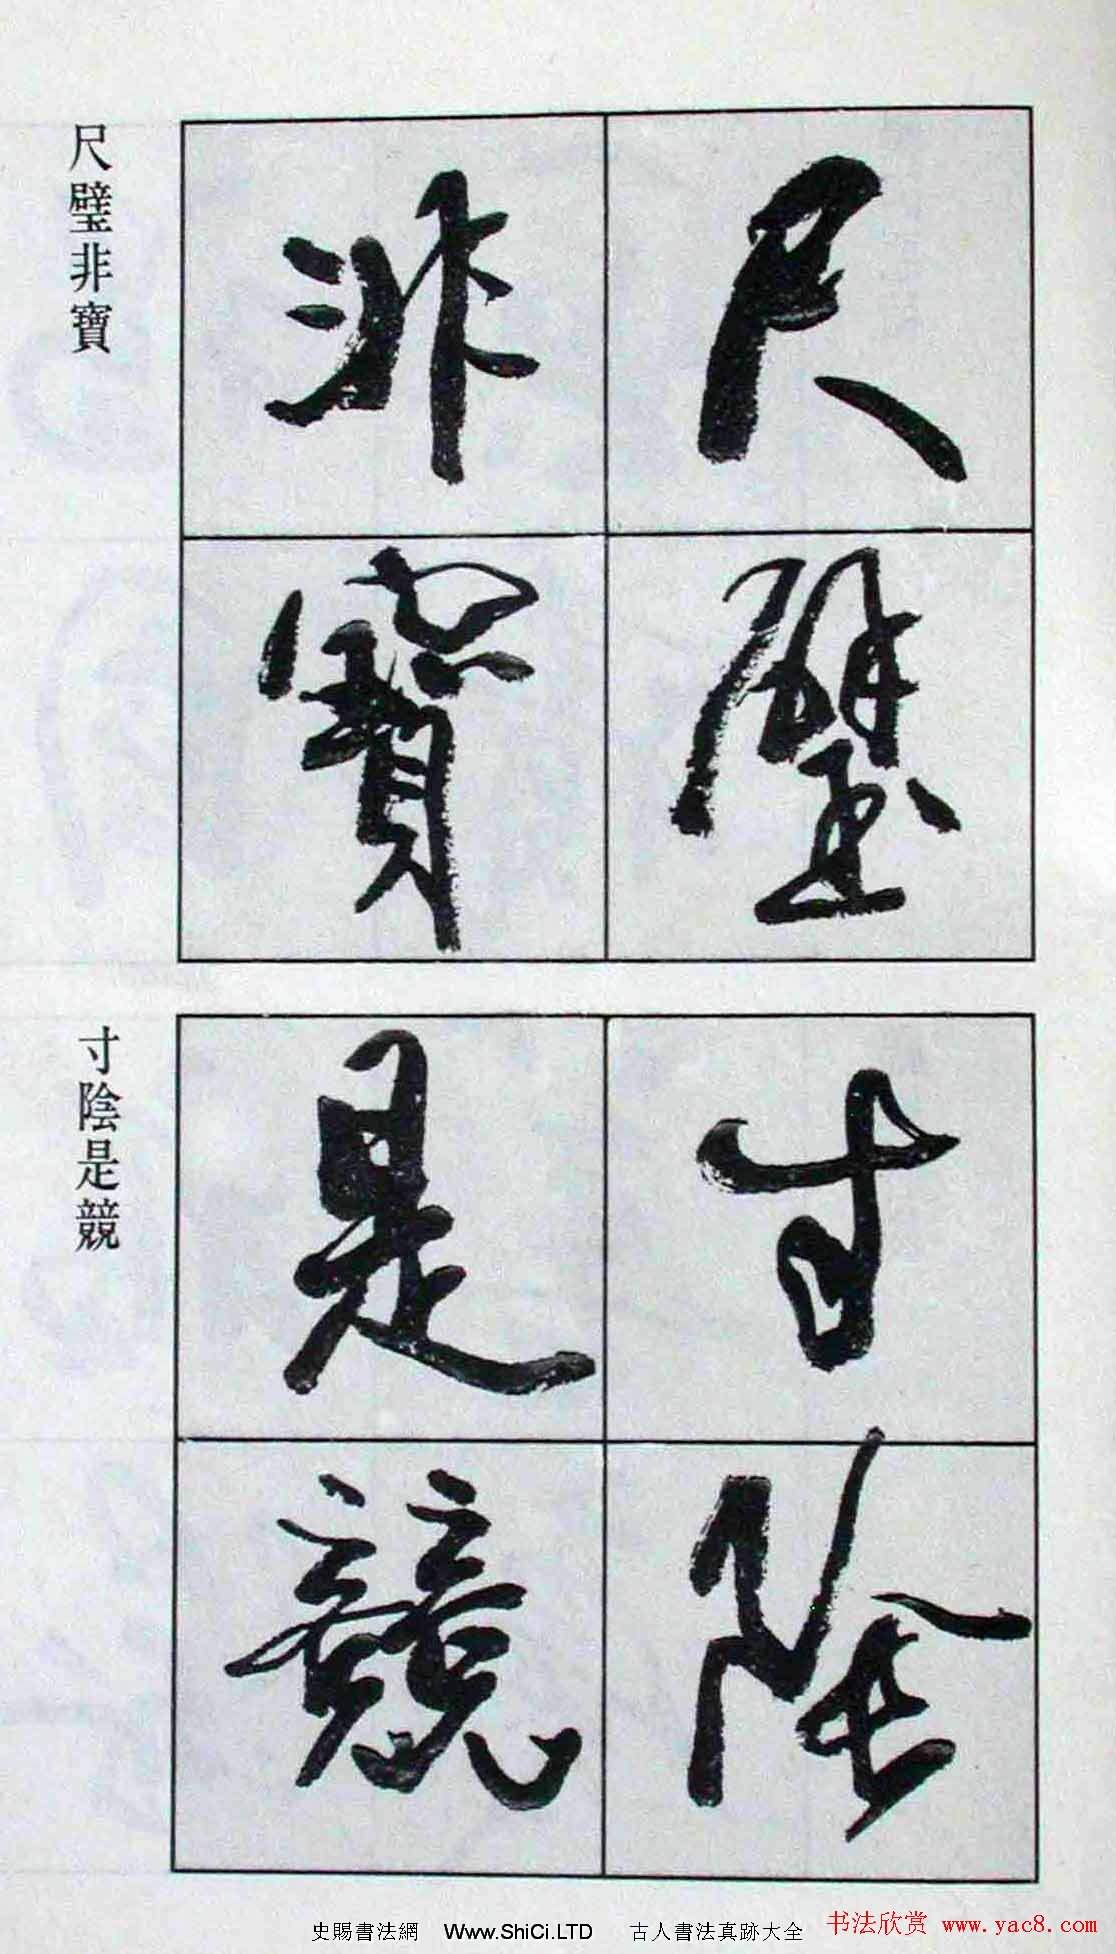 尺璧
非寶
尺璧非寶
寸陰
是競
寸陰是競
史賜書法網 Www.ShiCi.LTD 古人書法真跡大全
书法欣赏 www.yac8.com